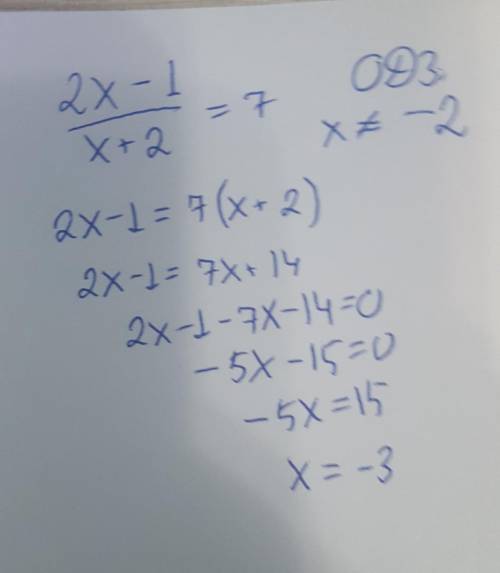 (2x-1)/(x+2) = 7
ОДЗ
x ≠ -2
2x-1 = 7(x+2)
2x-1 = 7x+14
2x-1-7x-14=0
-5x-15=0
-5x=15
x = -3